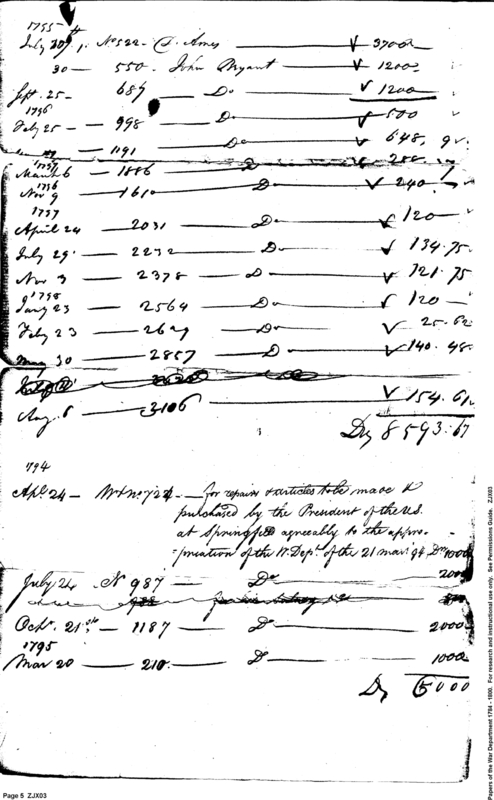 1795
July 30th No 522 D. Ames 3700
30 550 John Bryant 1200
Sept. 25 687 Do 1200
1796
Feby 25 998 Do 500
1191 Do 648, 9
1797
March 6 1886 D 288
1796
Nov 9 161 D 240
1797
April 24 2031 D 120
July 29 2232 D 134.75
Nov 3 2378 D 121.75
1798
Jany 23 2564 D 120
Feby 23 Do 25.62
May 30 2857 D 140.48
Aug. 6 3106 154.61
8593.67
1794
Apl 24 Wt No 724 for repairs & articles to be made &
purchased by the President of the U.S.
at Springfield agreeably to the appro-
-priation of the W. Dept. of the 21 Mar. 94 1000
July 24 N 987 Do 2000
Octr. 21st 1187 Do 2000
1795
Mar 20 210 Do 1000
5000
Page 5 ZJX03
Papers of the War Department 1784 - 1800. For research and instructional use only. See Permissions Guide. ZJX03